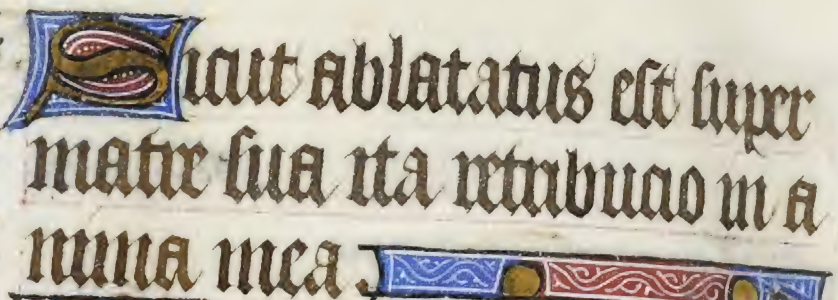 Sicut ablatatus est super
matre sua ita retribucio in a
nima mea.